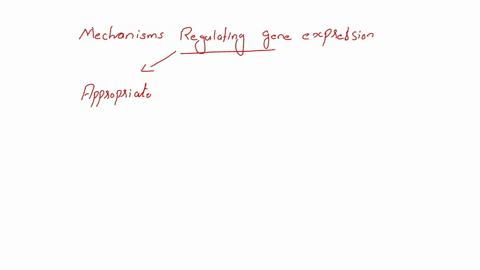 Mechanisms Regulating gene expression
Appropriate